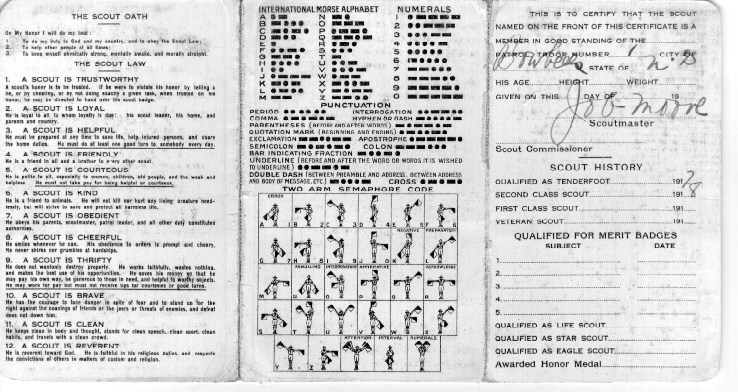 THE SCOUT OATH
On My Honor I will do my best:
1. To do my duty to God and my country, and to obey the Scout Law;
2. To help other people at all times;
3. To keep myself physically strong, mentally awake, and morally straight.
THE SCOUT LAW
1. A SCOUT IS TRUSTWORTHY
A scout's honor is to be trusted. If he were to violate his honor by telling a
lie, or by cheating, or by not doing exactly a given task, when trusted on his
honor, he may be directed to hand over his scout badge.
2. A SCOUT IS LOYAL
He is loyal to all to whom loyalty is due: his scout leader, his home, and
parents and country.
3. A SCOUT IS HELPFUL
He must be prepared at any time to save life, help injured persons, and share
the home duties. He must do at least one good turn to somebody every day.
4. A SCOUT IS FRIENDLY
He is a friend to all and a brother to every other scout.
5. A SCOUT IS COURTEOUS
He is polite to all, especially to women, children, old people, and the weak and
helpless. He must not take pay for being helpful or courteous.
6. A SCOUT IS KIND
He is a friend to animals. He will not kill nor hurt any living creature need-
lessly, but will strive to save and protect all harmless life.
7. A SCOUT IS OBEDIENT
He obeys his parents, scoutmaster, patrol leader, and all other duly constituted
authorities.
8. A SCOUT IS CHEERFUL
He smiles whenever he can. His obedience to orders is prompt and cheery.
He never shirks nor grumbles at hardships.
9. A SCOUT IS THRIFTY
He does not wantonly destroy property. He works faithfully, wastes nothing,
and makes the best use of his opportunities. He saves his money so that he
may pay his own way, be generous to those in need, and helpful to worthy objects.
He may work for pay but must not receive tips for courtesies or good turns.
10. A SCOUT IS BRAVE
He has the courage to face danger in spite of fear and to stand up for the
right against the coaxings of friends or the jeers or threats of enemies, and defeat
does not down him.
11. A SCOUT IS CLEAN
He keeps clean in body and thought, stands for clean speech, clean sport, clean
habits, and travels with a clean crowd.
12. A SCOUT IS REVERENT
He is reverent toward God. He is faithful in his religious duties, and respects
the convictions of others in matters of custom and religion.
INTERNATIONAL MORSE ALPHABET NUMERALS
A N 1
B O 2
C P 3
D Q 4
E R 5
F S 6
G T 7
H U 8
I V 9
J W 0
K X
L Y
M Z
PUNCTUATION
PERIOD INTERROGATION
COMMA HYPHEN OR DASH
PARENTHESES (BEFORE AND AFTER WORDS)
QUOTATION MARK (BEGINNING AND ENDING)
EXCLAMATION APOSTROPHE
SEMICOLON COLON
BAR INDICATING FRACTION
UNDERLINE (BEFORE AND AFTER THE WORD OR WORDS IT IS WISHED
TO UNDERLINE)
DOUBLE DASH (BETWEEN PREAMBLE AND ADDRESS, BETWEEN ADDRESS
AND BODY OF MESSAGE, ETC.) CROSS
TWO ARM SEMAPHORE CODE
ERROR
A B C D E F G
NEGATIVE PREPARATORY
H
ANNULLING INTERROGATORY AFFIRMATIVE ACKNOWLEDGE
M N O P Q R
S T U V W X
ATTENTION INTERVAL NUMERALS
Y Z
THIS IS TO CERTIFY THAT THE SCOUT
NAMED ON THE FRONT OF THIS CERTIFICATE IS A
MEMBER IN GOOD STANDING OF THE
PATROL, TROOP NUMBER 1 CITY
STATE OF
HIS AGE HEIGHT WEIGHT
GIVEN ON THIS DAY OF 19
Moore
Scoutmaster
Scout Commissioner
SCOUT HISTORY
QUALIFIED AS TENDERFOOT 1917
SECOND CLASS SCOUT 1918
FIRST CLASS SCOUT 191
VETERAN SCOUT 191
QUALIFIED FOR MERIT BADGES
SUBJECT DATE
1.
2.
3.
4.
5.
QUALIFIED AS LIFE SCOUT
QUALIFIED AS STAR SCOUT
QUALIFIED AS EAGLE SCOUT
Awarded Honor Medal